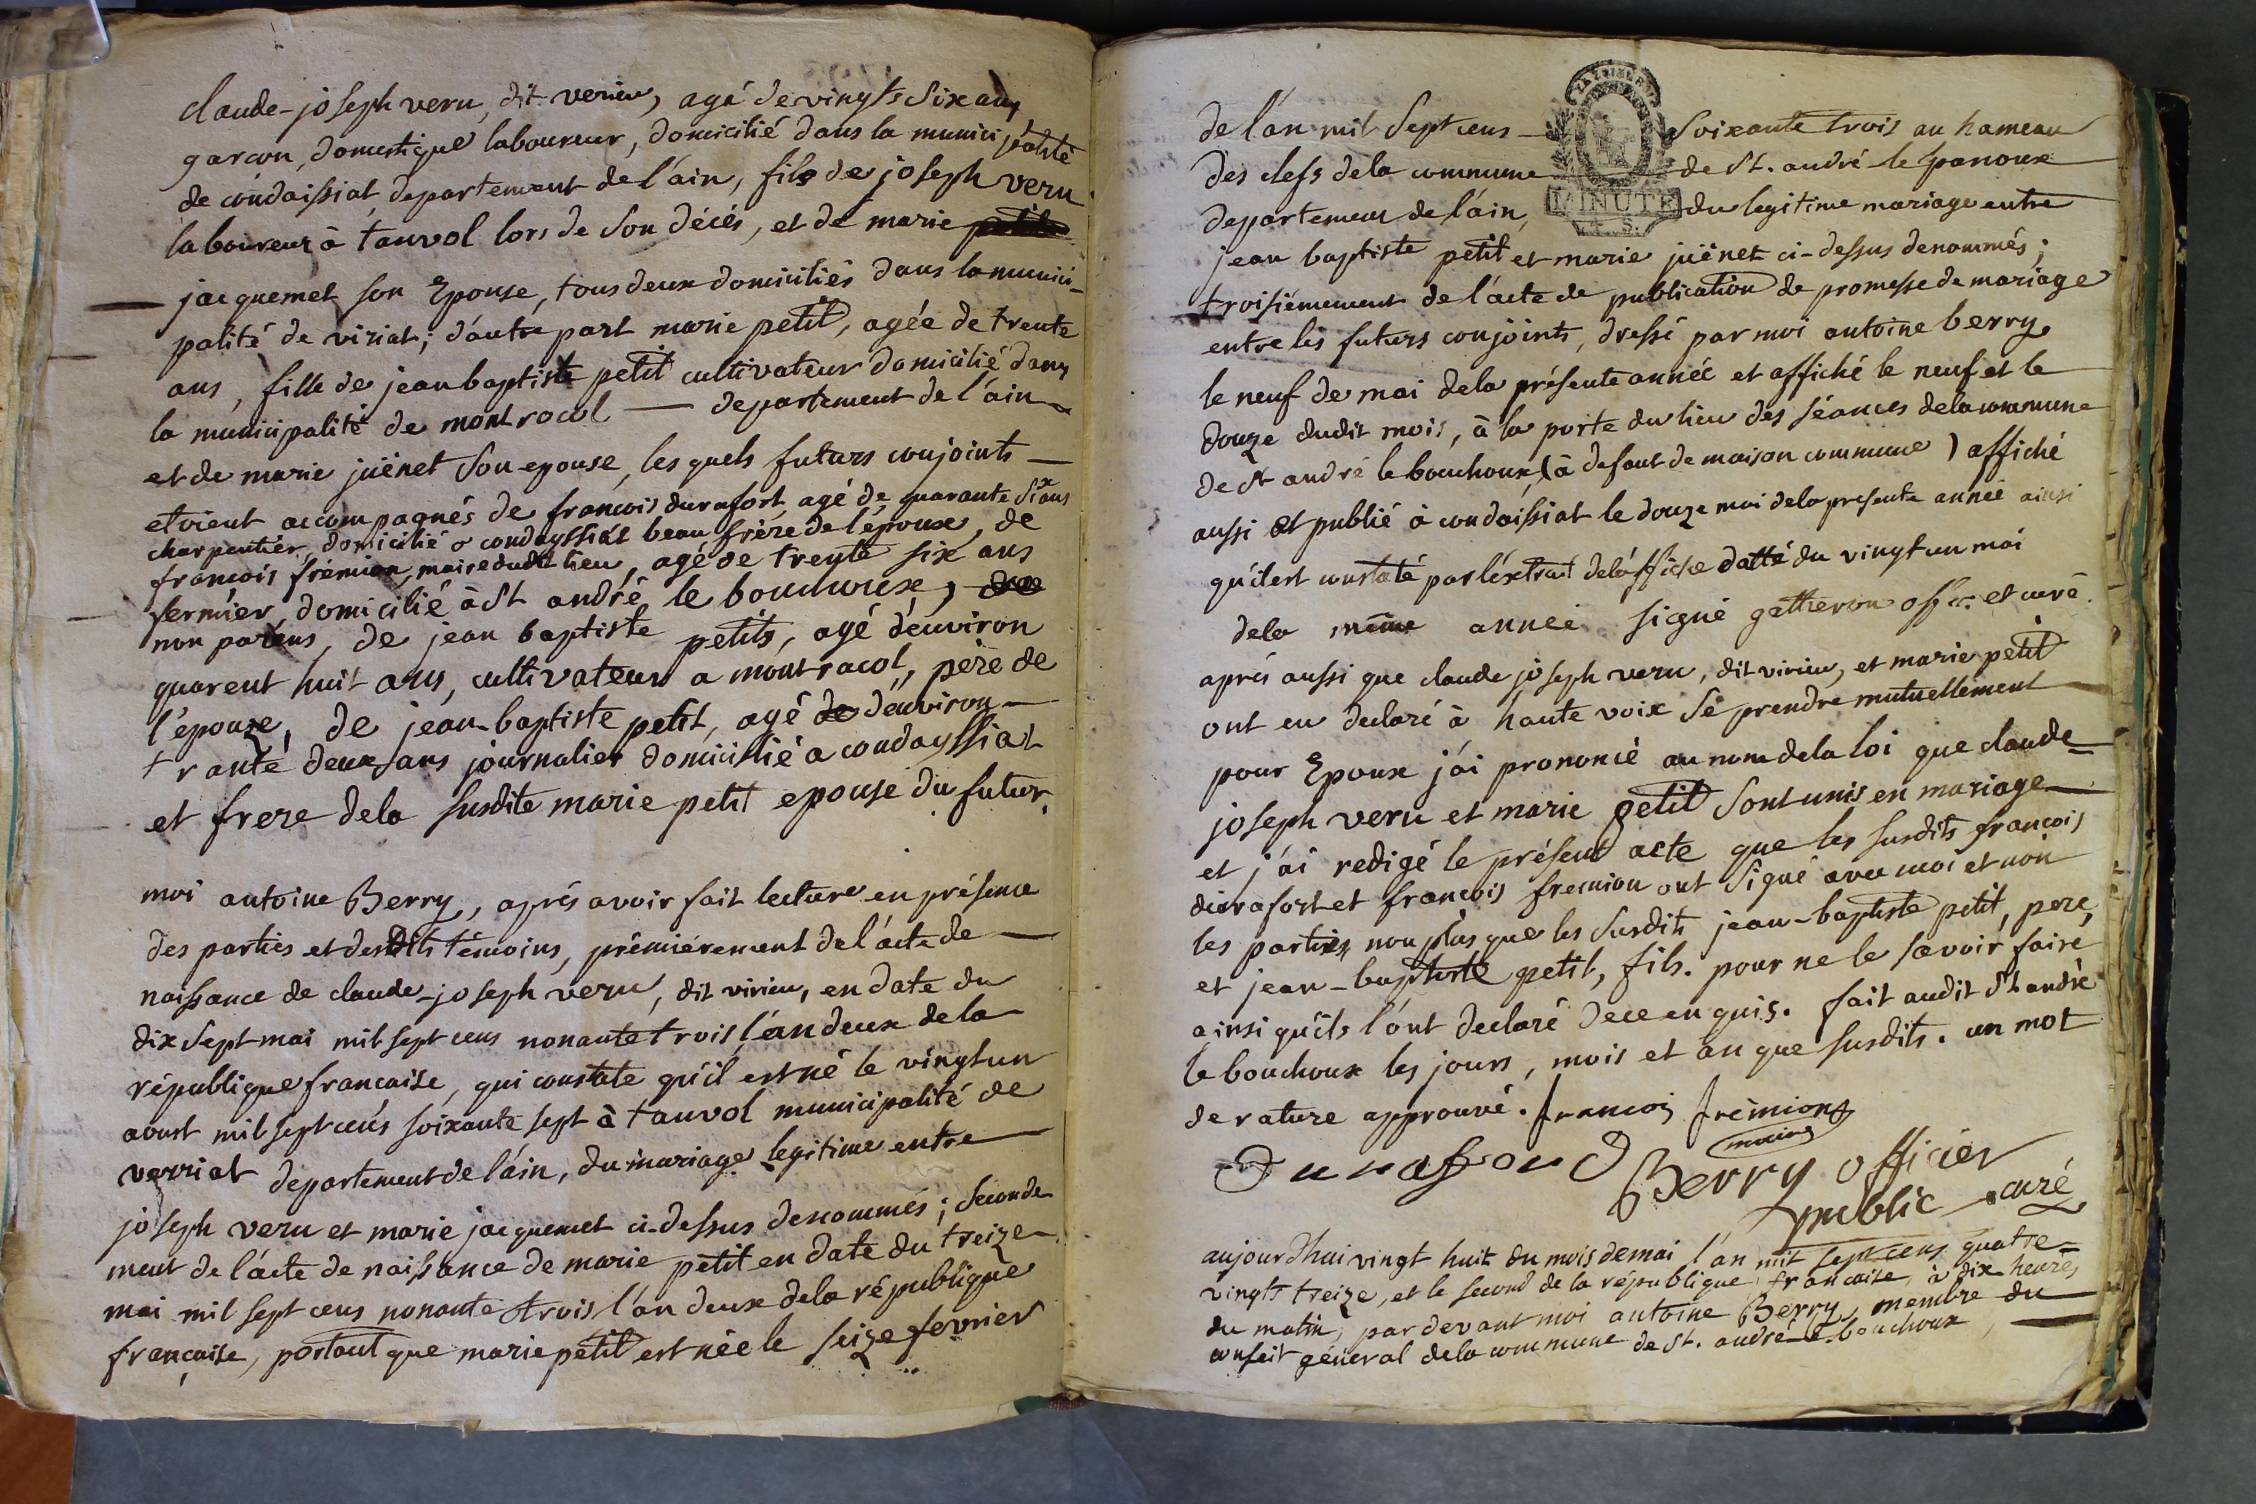 claude-joseph veru, dit verieu, agé de vingts six ans
garcon, domestique laboureur, domicilié dans la municipalité
de condaissiat departement de l'ain, fils de joseph veru
laboureur à tanvol lors de son décés, et de marie
jacquemet son Epouse, tous deux domiciliés dans la munici-
palité de viriat; d'autre part marie petit, agée de trente
ans, fille de jean baptiste petit cultivateur domicilié dans
la municipalité de montracol — departement de l'ain
et de marie juénet son epouse, les quels futurs conjoints —
etoient accompagnés de francois durafort, agé de quarante six ans
charpentier, domicilié a condayssiat beau frère de l'épouse, de
francois frémion, maire dudt lieu, agé de trente six ans
fermier, domicilié à St andré le bouchoux, de
non parens, de jean baptiste petits, agé d'environ
quarent huit ans, cultivateur a montracol, père de
l'épouze, de jean-baptiste petit, agé de d'environ —
trante deux ans journalier domicilié a condayssiat
et frere dela susdite marie petit epouse du futur.
moi antoine Berry, aprés avoir fait lecture en présence
des parties et desdits témoins, prémiérement de l'acte de —
naissance de claude-joseph veru, dit virieu, en date du
dix sept mai mil sept cens nonante trois, l'an deux de la
république francaise, qui constate qu'il est né le vingt un
avust mil sept cens soixante sept à tanvol municipalité de
verriat departement de l'ain, du mariage legitime entre
joseph veru et marie jacquemet ci-dessus denommés; seconde
ment de l'acte de naissance de marie petit en date du treize
mai mil sept cens nonante trois l'an deux dela république
française, portant que marie petit est née le seize fevrier
de l'an mil sept cens — soixante trois au hameau
des clefs dela commune — de St. andré le panoux
departement de l'ain, du legitime mariage entre
MINUTE
4. S.
jean baptiste petit et marie juénet ci-dessus denommés;
troisiémement de l'acte de publication de promesse de mariage
entre les futurs conjoints, dressé par moi antoine berry
le neuf de mai dela présente année et affiché le neuf et le
douze dudit mois, à la porte du lieu des séances dela commune
de St andré le bouchoux (à defaut de maison commune) affiché
aussi et publié à condaissiat le douze mai dela presente année ainsi
qu'il est constaté par l'éxtrait del'affiche datté du vingt un mai
dela même année signé gatheron offer. et curé.
aprés aussi que claude joseph veru, dit virieu, et marie petit
ont eu declaré à haute voix se prendre mutuellement
pour Epoux j'ai prononcé au nom dela loi que claude
joseph veru et marie petit sont unis en mariage
et j'ai redigé le présent acte que les susdits francois
durafort et francois fremion ont signé avec moi et non
les parties, non plus que les susdits jean-baptiste petit, pere,
et jean-baptiste petit, fils. pour ne le savoir faire
ainsi qu'ils l'ont declaré de ce enquis. fait audit St andré
le bouchoux les jours, mois et an que susdits. un mot
de rature approuvé. francois frémion
maire
Durafour Berry officier
public curé
aujourdhui vingt huit du mois de mai l'an mil sept cens quatre-
vingts treize, et le second de la république francaise, à dix heures
du matin, par devant moi antoine Berry, membre du
conseil général dela commune de St. andré-le-bouchoux,